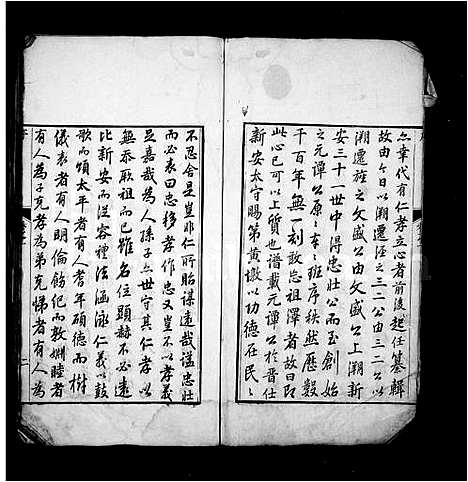 亦幸代有仁孝立心者前後起任纂輯
故由今日以溯遷涇之三二公由三二公以
溯遷旌之文盛公由文盛公上溯新
安三十一世中得忠壯公而至創始
之元譚公原原本本班序秩然歷數
千百年無一刻敢忘祖澤者故曰即
此心已可以上質也攷載元譚公於晉仕
新安太守賜第黃墩以功德在民民
不忍舍是豈非仁所貽謀遠哉溢忠壯
而必表曰忠移孝作忠又豈不以孝義
是嘉哉為人孫子亦世守其仁孝以
無忝厥祖而已雖名位顯赫不必遠
比新安而從容禮法涵泳仁義以鼓
歌而頌太平者有人耆年碩德而樹
儀表者有人明倫飭紀而敦婣睦者
有人為子克孝為弟克悌者有人為